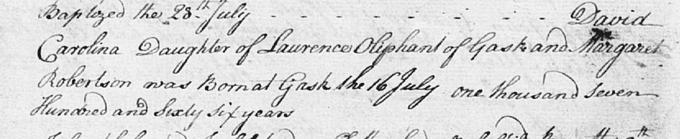 Baptozed the 28th July - - - - - - - David
Carolina Daughter of Laurence Oliphant of Gask and Margaret
Robertson was Born at Gask the 16 July one thousand Seven
Hundred and Sixty Six years